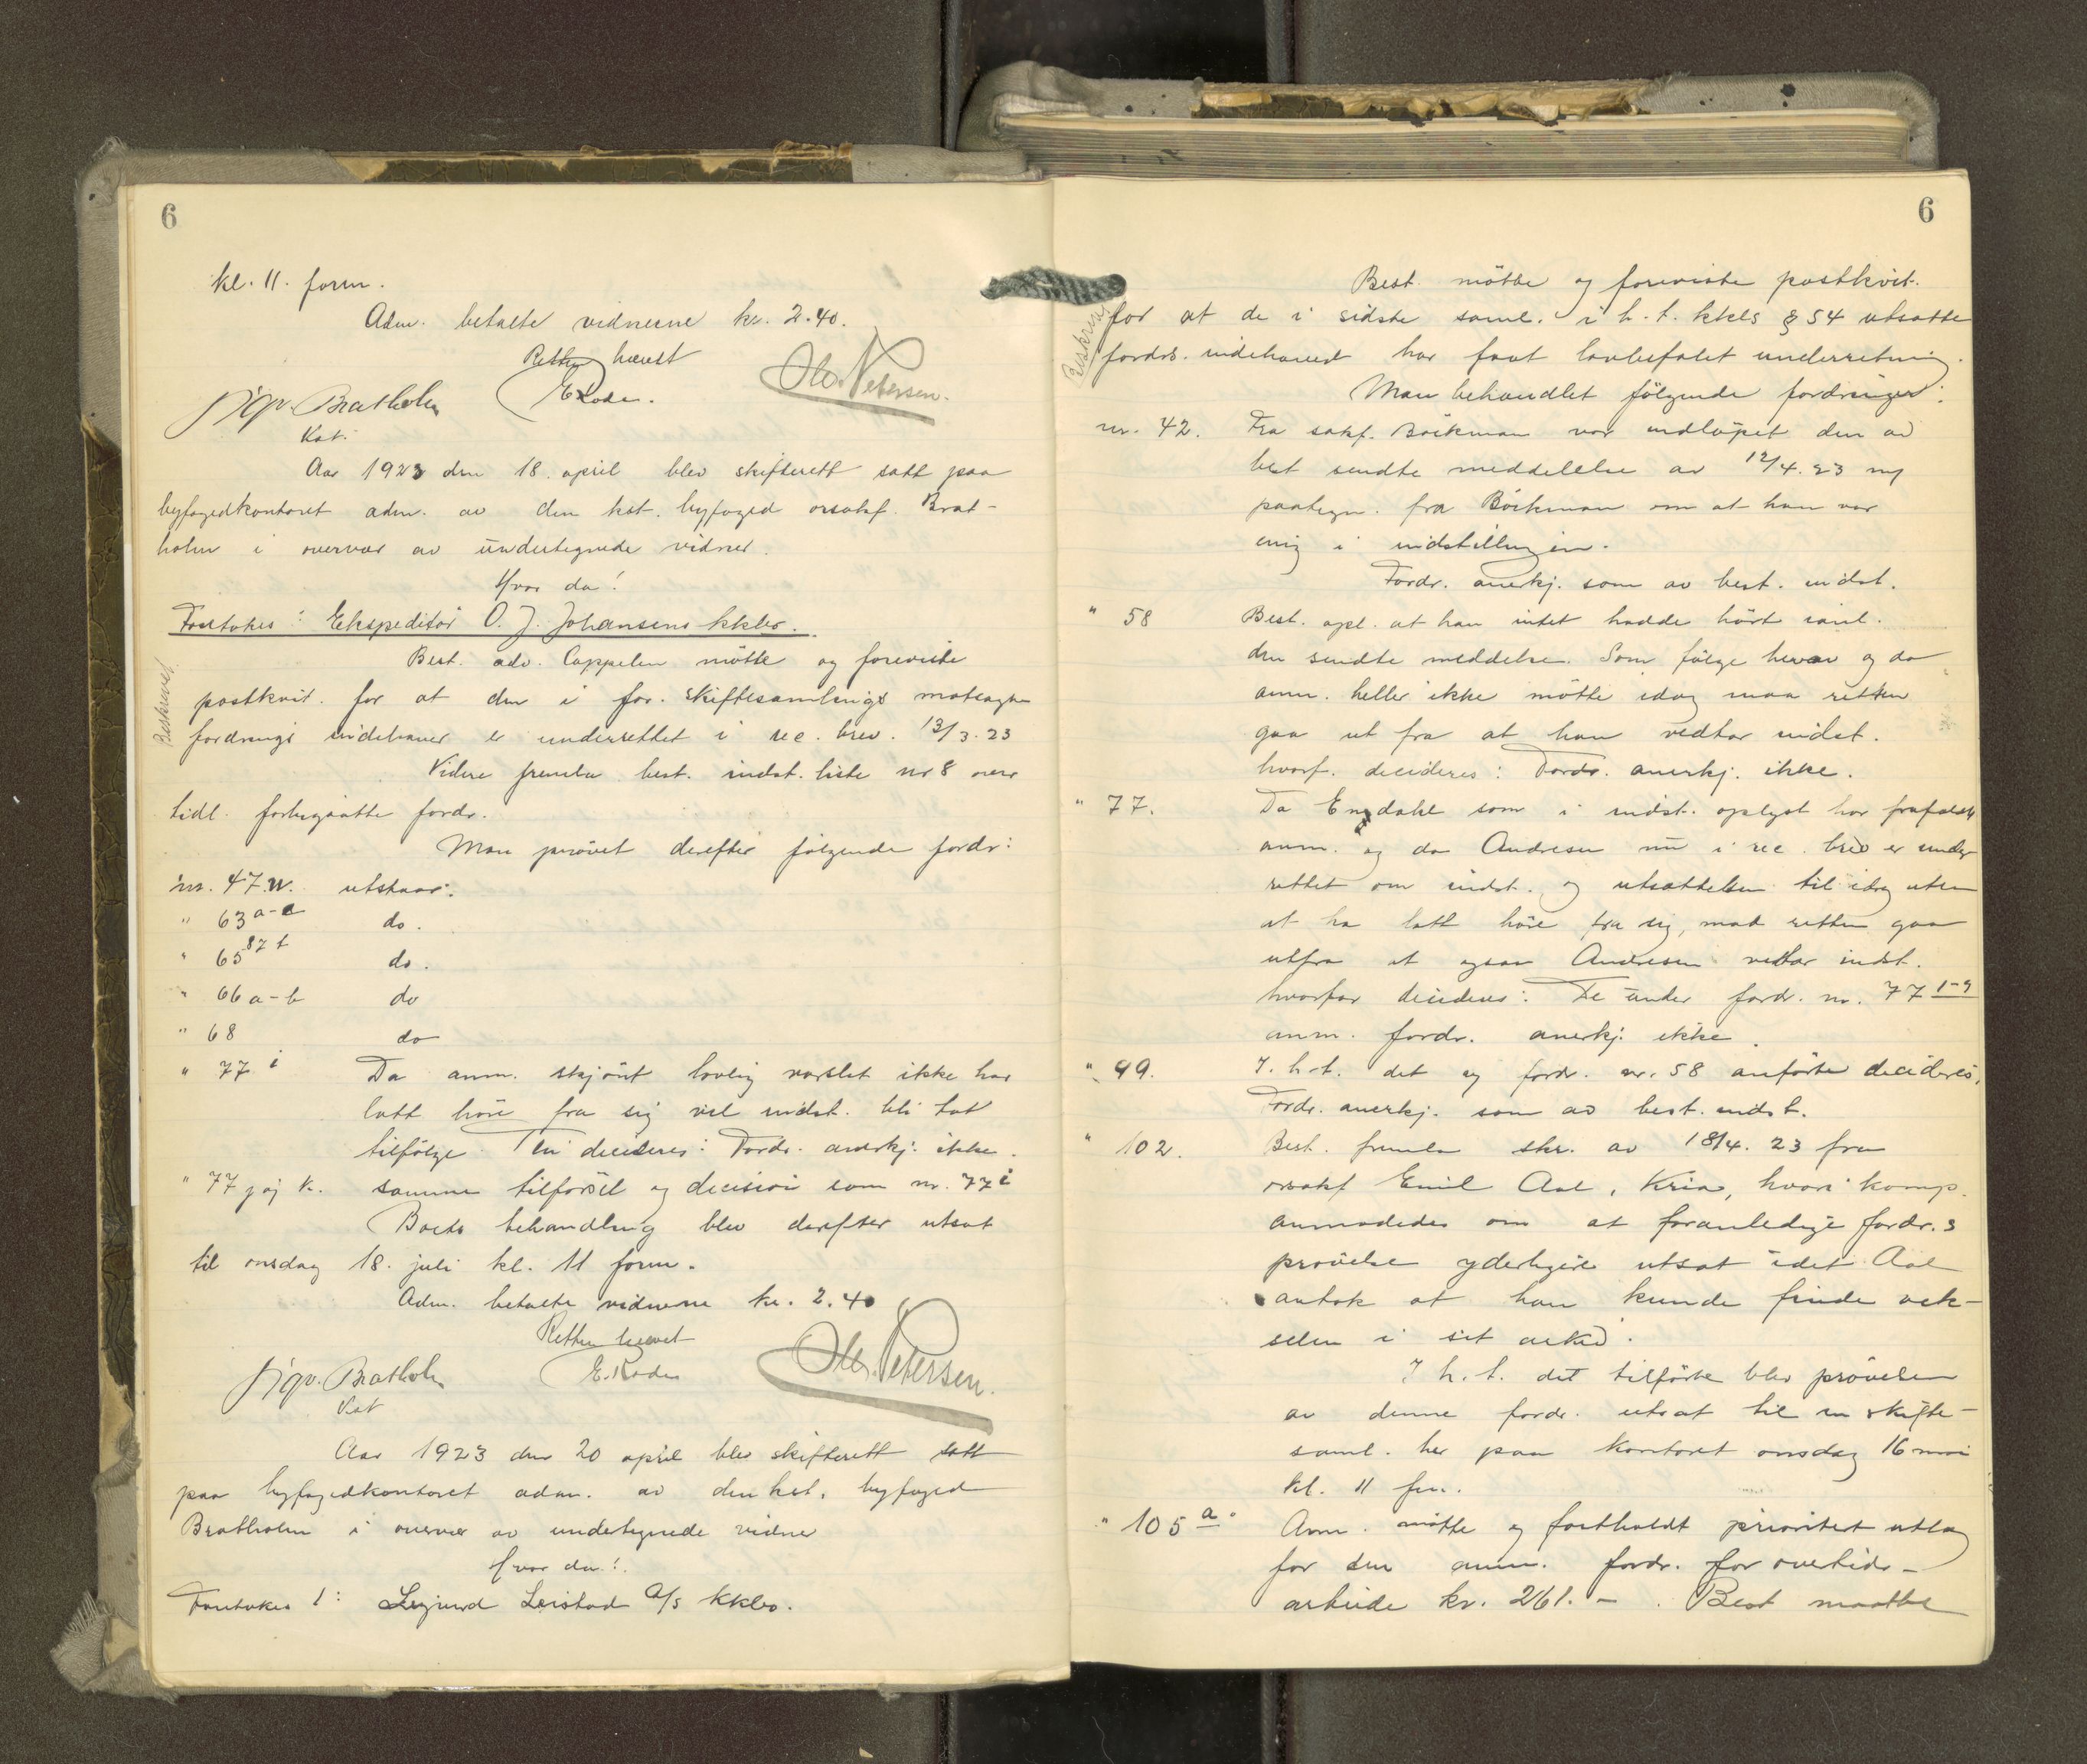 6
kl. 11. form.
Adm. betalte vidnerne kr. 2.40.
Retten hævet
Sigv. Bratholm E Rode. Ole Petersen.
Kst.
Aar 1923 den 18. april blev skifterett satt paa
byfogedkontoret adm. av den kst. byfoged orsakf. Brat-
holm i overvær av undertegnede vidner.
Hvor da!
Foretokes: Ekspeditør O. J. Johansens kkbo.
Beskrevet
Best. adv. Cappelen møtte og foreviste
postkvit. for at den i for. skiftesamlings motsagte
fordrings indehaver er underrettet i rec. brev. 13/3.23
Videre fremla best. indst. liste nr 8 over
tidl. forbigaatte fordr.
Man prøvet derefter følgende fordr:
nr. 47.n. utstaar.
" 63 a-c do.
" 65 do.
" 66 a-b do
" 68 do
" 77 i Da anm. skjønt lovlig varslet ikke har
latt høre fra sig vil indst. bli tat
tilfølge Thi decideres: Fordr. anerkj. ikke.
" 77 j og k. samme tilførsel og decision som nr. 77 i
Boets behandling blev derefter utsat
til onsdag 18. juli kl. 11 form.
Adm. betalte vidnerne kr. 2.40
Retten hævet
Sigv. Bratholm E. Rode Ole Petersen.
Kst
Aar 1923 den 20 april blev skifterett satt
paa byfogedkontoret adm. av den kst. byfoged
Bratholm i overvær av undertegnede vidner
Hvor da!
Foretokes 1: Leistad A/S kkbo.
6
Best. møtte og foreviste postkvit.
Beskrevet
for at de i sidste saml. i h. t. kkls § 54 utsatte
fordrs. indehaver har faat lovbefalet underretning.
Man behandlet følgende fordringer:
nr. 42. Fra sakf. Böckman var indløpet den av
best sendte meddelelse av 12/4.23 m/
paategn. fra Böckman om at han var
enig i indstillingen.
Fordr. anerkj. som av best. indst.
" 58 Best. opl. at han intet hadde hørt
den sendte meddelse. Som følge herav og da
anm. heller ikke møtte idag maa retten
gaa ut fra at han vedtar indst.
hvorf. decideres: Fordr. anerkj. ikke.
" 77. Da Engdahl som i indst. oplyst har frafaldt
anm. og da Andresen nu i rec. brev er under
rettet om indst. og utsættelsen til idag uten
at ha latt høre fra sig, maa retten gaa
utfra at ogsaa Andresen vedtar indst.
hvorfor decideres: De under fordr. nr. 77 1-9
anm. fordr. anerkj. ikke.
" 99. I. h. t. det ang. fordr. nr. 58 anførte decideres.
Fordr. anerkj. som av best. indst.
" 102. Best. fremla skr. av 18/4. 23 fra
orsakf Emil Aal, Kria, hvori komp.
anmodedes om at foranledige fordr.s
prøvelse yderligere utsat idet Aal
antok at han kunde finde vek-
selen i sit arkiv.
I h. t. det tilførte blev prøvelsen
av denne fordr. utsat til en skifte-
saml. her paa kontoret onsdag 16 mai
kl. 11 fm.
" 105 a Anm. møtte og fastholdt prioritert utlæg
for den anm. fordr. for overtids-
arbeide kr. 261.- . Best maatte